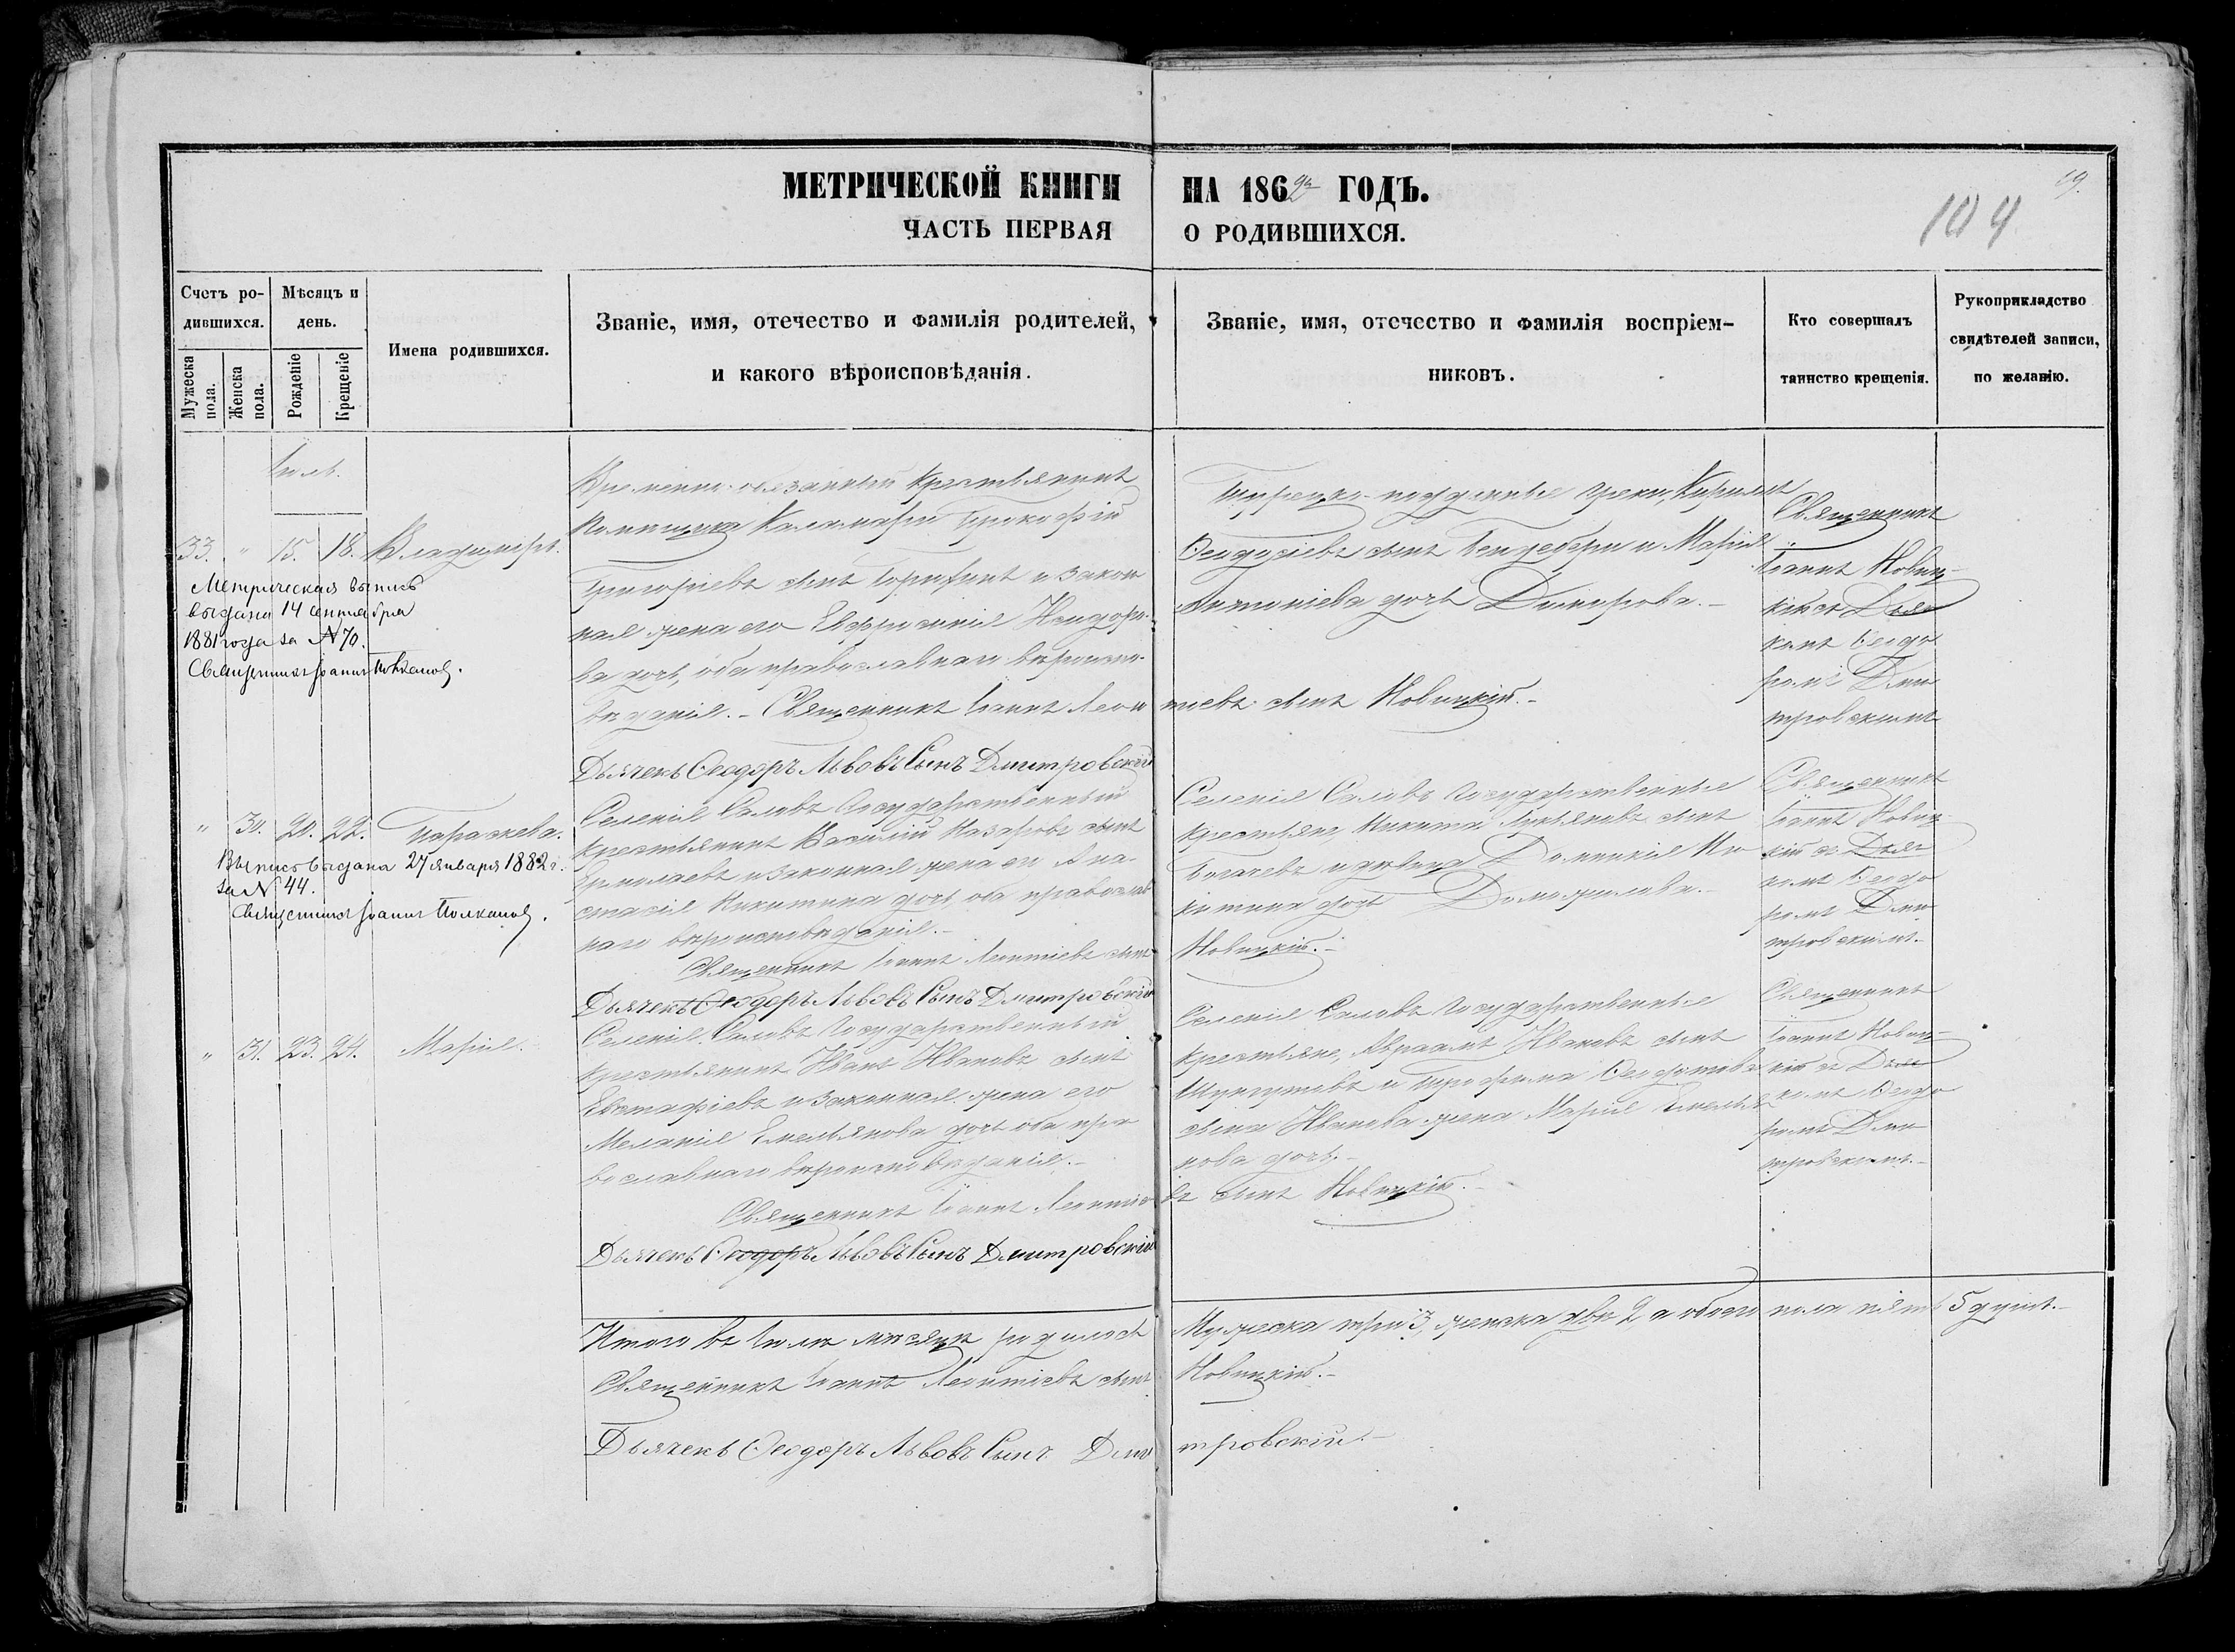 МЕТРИЧЕСКОЙ КНИГИ НА 1862й ГОДЪ.
ЧАСТЬ ПЕРВАЯ О РОДИВШИХСЯ.
19.
104
Счетъ родившихся.
Мужеска пола.
Женска пола.
Мѣсяцъ и день.
Рожденіе
Крещеніе
Имена родившихся.
Званіе, имя, отечество и фамилія родителей,
и какого вѣроисповѣданія.
Званіе, имя, отечество и фамилія воспріем-
никовъ.
Кто совершалъ
таинство крещенія.
Рукоприкладство
свидѣтелей записи,
по желанію.
Іюль.
33. " 15. 18. Владиміръ.
Метрическая выпись
выдана 14 сентября
1881 года за № 70.
Священникъ Іоаннъ
Временно-обязанный крестьянинъ
помѣщика Прокофій
Григоріевъ сынъ и закон
ная жена его Евфросинія
ва дочь, оба православнаго вѣроиспо-
вѣданія. - Священникъ Іоаннъ Леон
тіевъ сынъ Новицкій. -
Дьячекъ Ѳеодоръ Львовъ Сынъ Дмитровскій
Турецко-подданные греки, Кирилъ
Ѳеодосіевъ сынъ и Марія
Антоніева дочь Димирова. -
Священникъ
Іоаннъ Новиц-
кій съ Дьяч
комъ Ѳеодо
ромъ Дми
тровскимъ
" 30. 20. 22. Параскева.
Выпись выдана 27 января 1882 г.
за № 44.
Священникъ Іоаннъ
Селенія Саловъ Государственный
крестьянинъ Василій Назаровъ сынъ
Ермолаевъ и законная жена его Ана-
стасія Никитина дочь оба православ
наго вѣроисповѣданія. -
Священникъ Іоаннъ Леонтіевъ сынъ
Новицкій. -
Дьячекъ Ѳеодоръ Львовъ Сынъ Дмитровскій
Селенія Саловъ Государственные
крестьяне, Никита Лукьяновъ сынъ
Богачевъ и дѣвица Домникія Ни
китина дочь
Священникъ
Іоаннъ Новиц
кій съ Дьяч
комъ Ѳеодо
ромъ Дми
тровскимъ. -
" 31. 23. 24. Марія.
Селенія Саловъ Государственный
крестьянинъ Иванъ Ивановъ сынъ
Евстафіевъ и законная жена его
Меланія Емельянова дочь оба пра
вославнаго вѣроисповѣданія. -
Священникъ Іоаннъ Леонтіе
въ сынъ Новицкій. -
Дьячекъ Ѳеодоръ Львовъ Сынъ Дмитровскій
Селенія Саловъ Государственные
крестьяне, Авраамъ Ивановъ сынъ
и Трофима
сына Иванова жена Марія Емелья
нова дочь. -
Священникъ
Іоаннъ Новиц-
кій съ Дьяч
комъ Ѳеодо
ромъ Дми
тровскимъ. -
Итого въ Іюлѣ мѣсяцѣ родилось Мужеска три 3, женска двѣ 2 а обоего пола пять 5 душъ. -
Священникъ Іоаннъ Леонтіевъ сынъ Новицкій. -
Дьячекъ Ѳеодоръ Львовъ Сынъ Дми тровскій. -